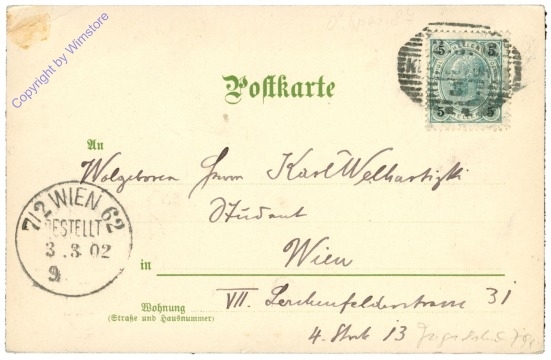 Copyright by Wimstore
5 5
5 5
Postkarte
An
Wolgeboren Herrn Karl Welhartizki
Student
in Wien
7/2 WIEN 62
BESTELLT
3.3 02
9
Wohnung
(Straße und Hausnummer)
VII. Lerchenfelderstrasse 31
4. Stock 13